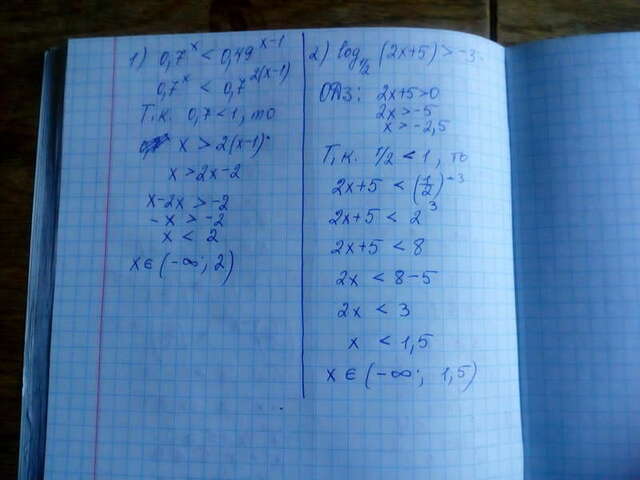 1) 0,7^x < 0,49^(x-1)
0,7^x < 0,7^(2(x-1))
Т.к. 0,7 < 1, то
x > 2(x-1)
x > 2x-2
x-2x > -2
-x > -2
x < 2
x ∈ (-∞; 2)
2) log_(1/2) (2x+5) > -3
ОДЗ: 2x+5>0
2x > -5
x > -2,5
Т.к. 1/2 < 1, то
2x+5 < (1/2)^(-3)
2x+5 < 2^3
2x+5 < 8
2x < 8-5
2x < 3
x < 1,5
x ∈ (-∞; 1,5)